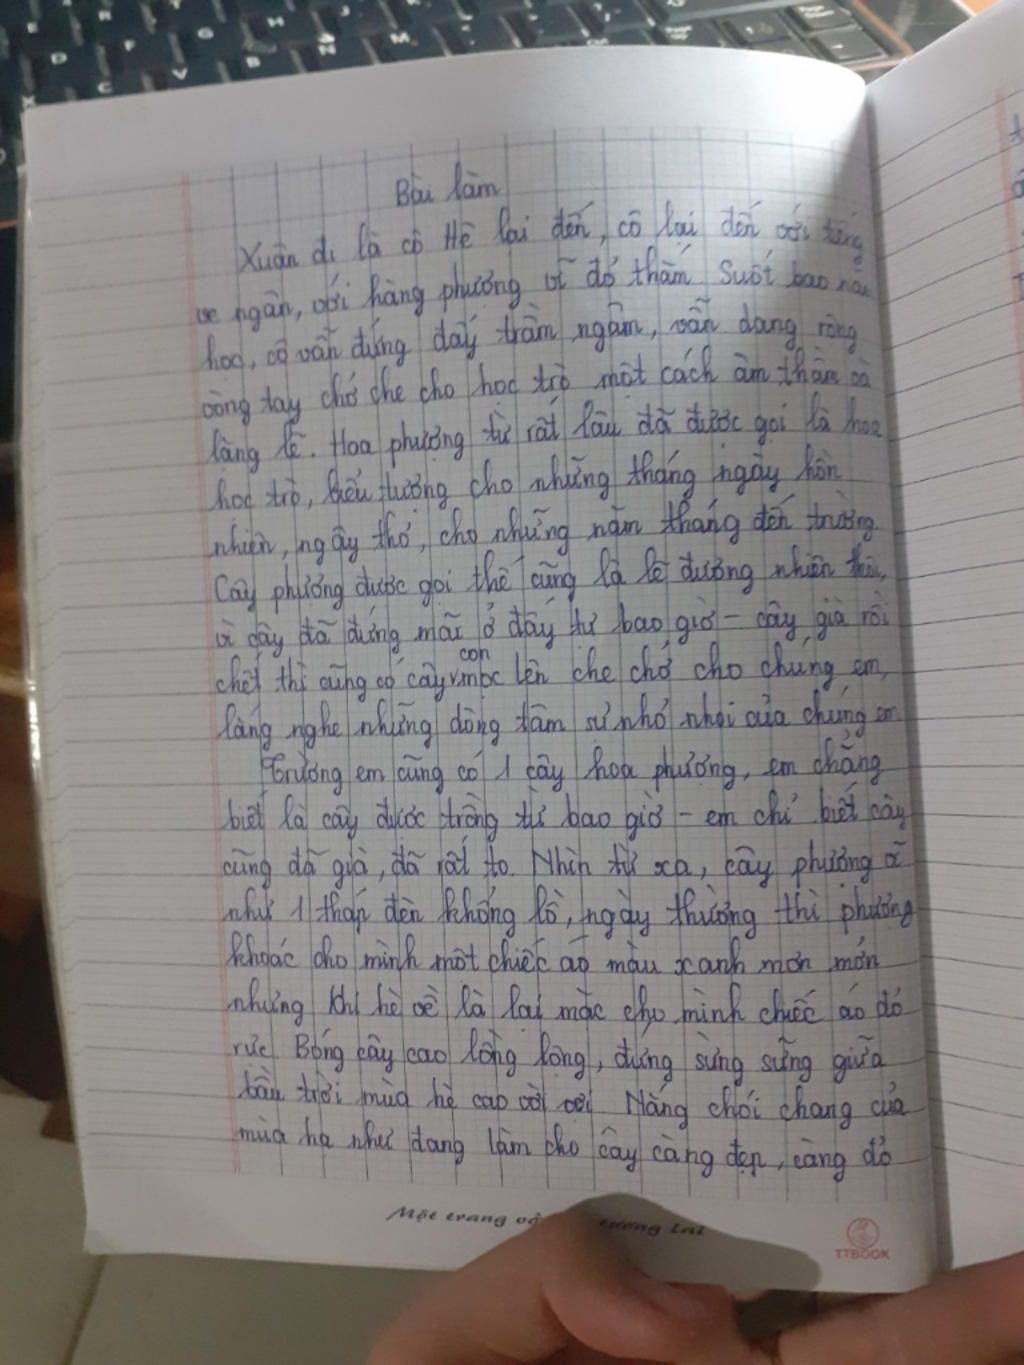 Bài làm
Xuân đi là cô Hè lại đến, cô lại đến với tiếng
ve ngân, với hàng phượng vĩ đỏ thắm. Suốt bao năm
học, cô vẫn đứng đấy trầm ngâm, vẫn dang rộng
vòng tay chở che cho học trò một cách âm thầm và
lặng lẽ. Hoa phượng từ rất lâu đã được gọi là hoa
học trò, biểu tượng cho những tháng ngày hồn
nhiên, ngây thơ, cho những năm tháng đến trường.
Cây phượng được gọi thế cũng là lẽ đương nhiên thôi,
vì cây đã đứng mãi ở đấy từ bao giờ - cây già rồi
chết thì cũng có cây con mọc lên che chở cho chúng em,
lắng nghe những dòng tâm sự nhỏ nhoi của chúng em
Trường em cũng có 1 cây hoa phượng, em chẳng
biết là cây được trồng từ bao giờ - em chỉ biết cây
cũng đã già, đã rất to. Nhìn từ xa, cây phượng vĩ
như 1 tháp đèn khổng lồ, ngày thường thì phượng
khoác cho mình một chiếc áo màu xanh mơn mởn
nhưng khi hè về là lại mặc cho mình chiếc áo đỏ
rực. Bóng cây cao lồng lộng, đứng sừng sững giữa
bầu trời mùa hè cao vời vợi. Nắng chói chang của
mùa hạ như đang làm cho cây càng đẹp, càng đỏ
Một trang vở tương lai
TTBOOK